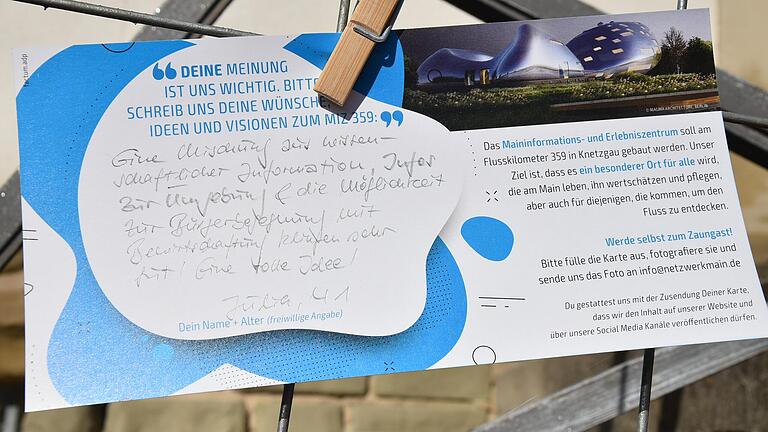 factum.adp
DEINE MEINUNG
IST UNS WICHTIG. BITTE
SCHREIB UNS DEINE WÜNSCHE,
IDEEN UND VISIONEN ZUM MIZ 359:
Eine Mischung aus wissen-
schaftlicher Information, Infos
zur Umgebung & die Möglichkeit
zur Bürgerbegegnung mit
Bewirtschaftung klingen sehr
gut! Eine tolle Idee!
Julia, 41
Dein Name + Alter (freiwillige Angabe)
© MAGMA ARCHITECTURE, BERLIN
Das Maininformations- und Erlebniszentrum soll am
Flusskilometer 359 in Knetzgau gebaut werden. Unser
Ziel ist, dass es ein besonderer Ort für alle wird,
die am Main leben, ihn wertschätzen und pflegen,
aber auch für diejenigen, die kommen, um den
Fluss zu entdecken.
Werde selbst zum Zaungast!
Bitte fülle die Karte aus, fotografiere sie und
sende uns das Foto an info@netzwerkmain.de
Du gestattest uns mit der Zusendung Deiner Karte,
dass wir den Inhalt auf unserer Website und
über unsere Social Media Kanäle veröffentlichen dürfen.